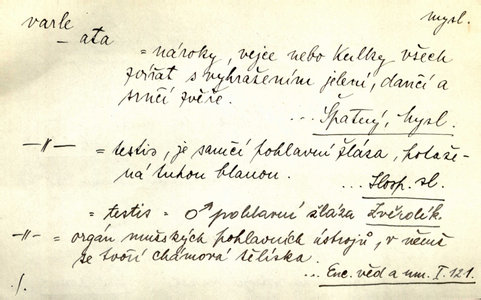 varle mysl.
– ata
= nároky, vejce nebo kulky všech
zvířat s vyhrazením jelení, dančí a
srnčí zvěře.
... Špatný, Mysl.
–"– = testis, je samčí pohlavní žláza, potaže-
ná tuhou blanou.
... Hosp. sl.
= testis = ♂ pohlavní žláza Zvěrolék.
–"– = orgán mužských pohlavních ústrojů, v němž
se tvoří chámová tělíska.
./. ... Enc. věd a um. I. 121.